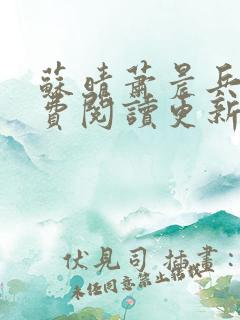 蘇晴蕭晨兵
費閱讀更新
伏見司 插畫：
未經同意禁止轉載